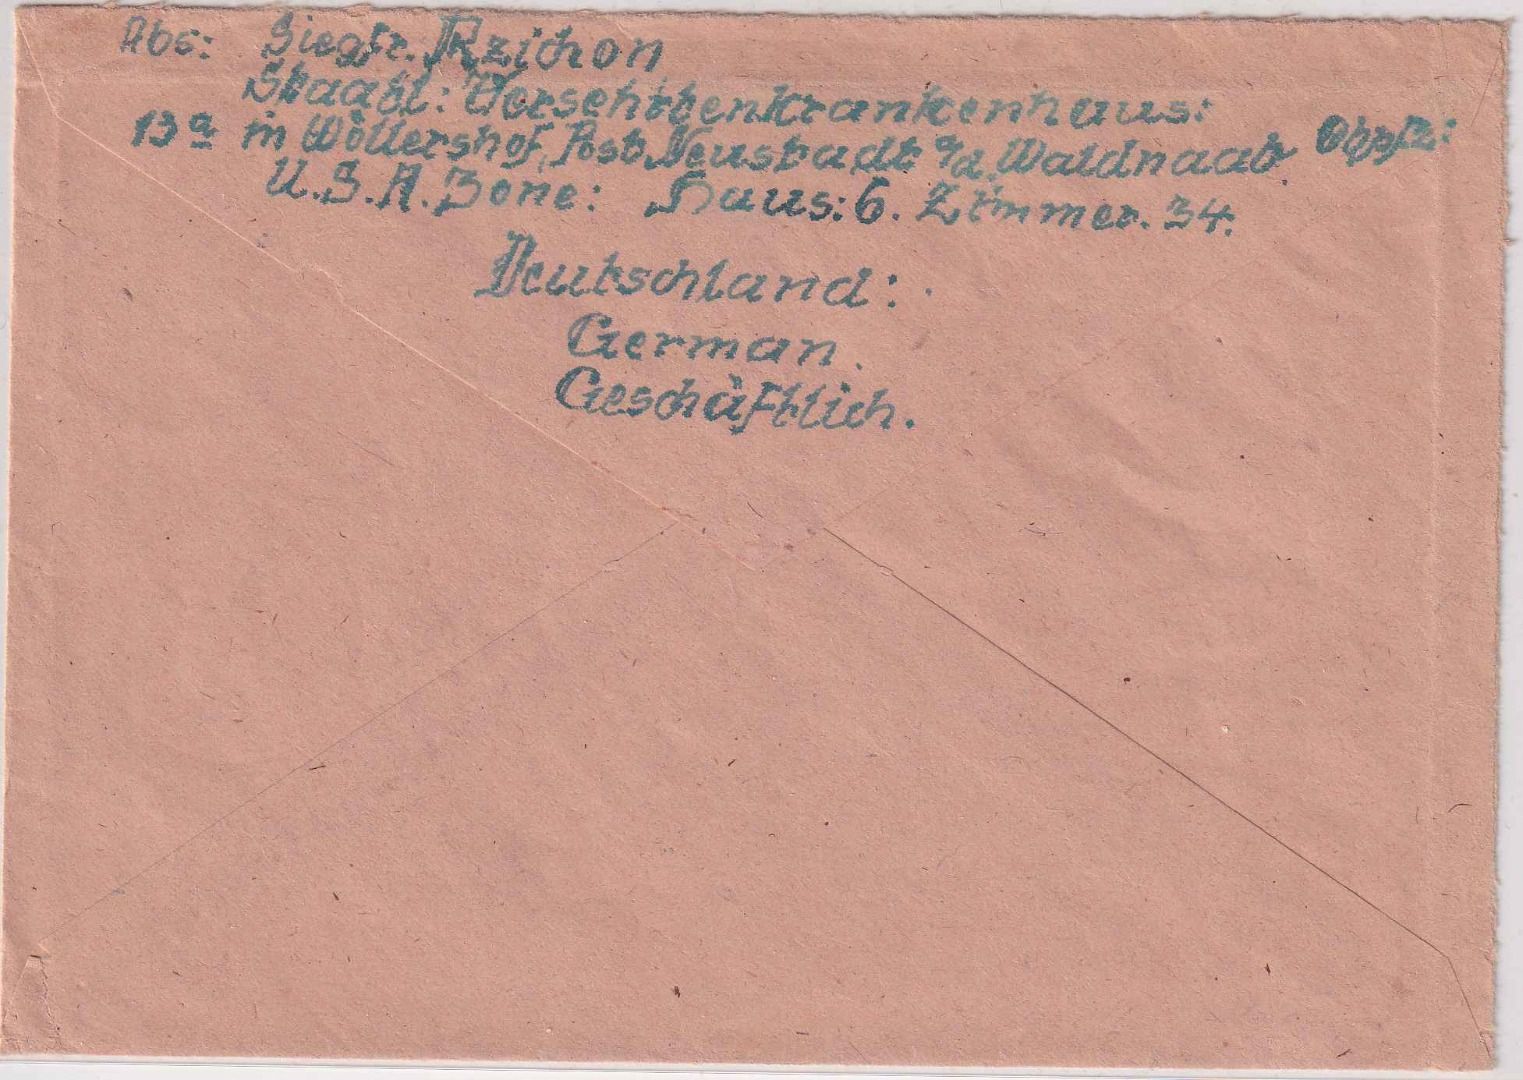 Abs: Siegfr. Rzichon
Staatl: Versehrtenkrankenhaus:
13a in Wöllershof, Post Neustadt a/d. Waldnaab. Obpfz:
U.S.A. Zone: Haus: 6. Zimmer. 34.
Deutschland:.
German.
Geschäftlich.